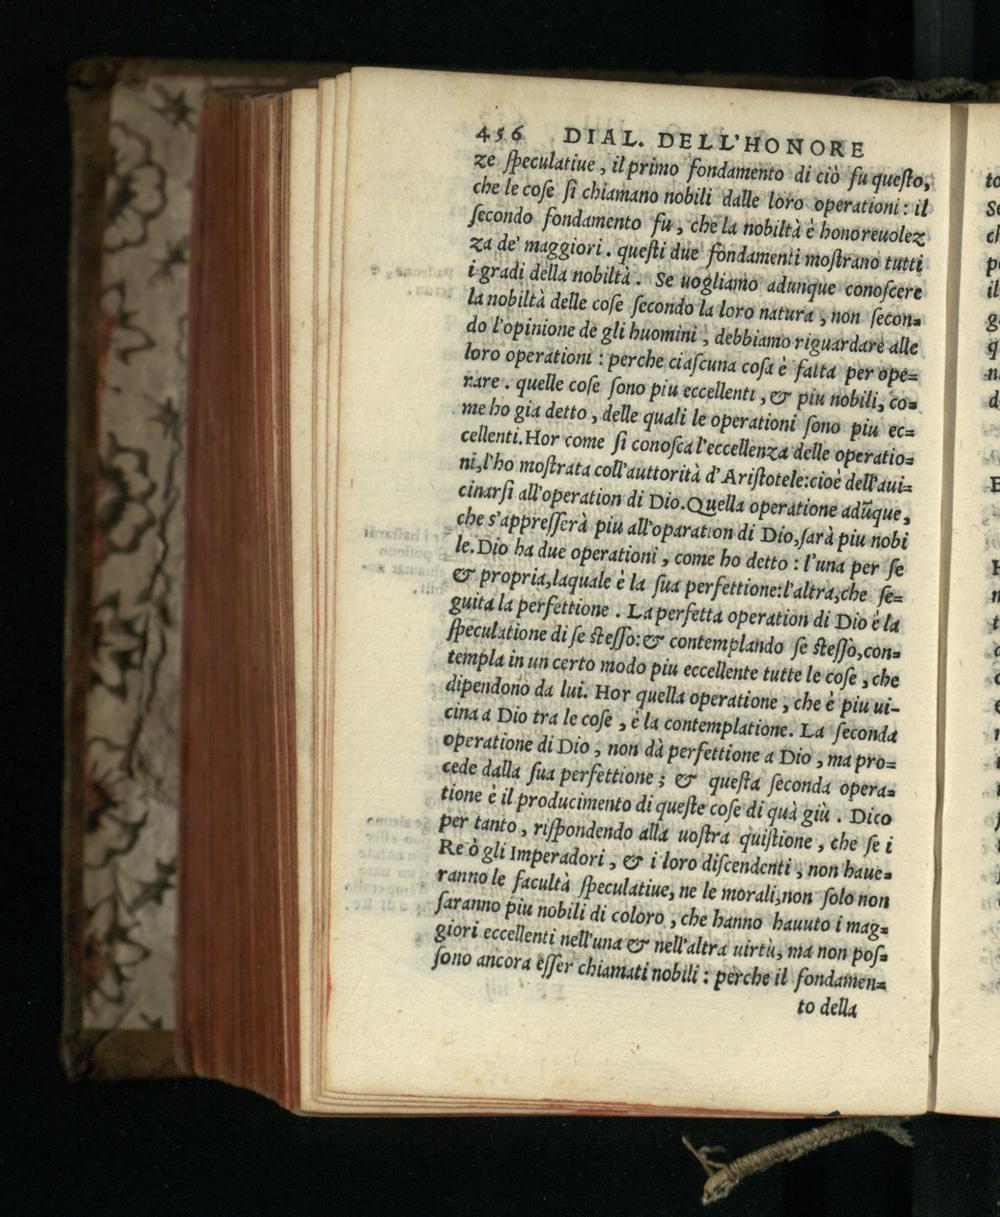 456 DIAL. DELL'HONORE
ze ſpeculatiue, il primo fondamento di ciò fu queſto,
che le coſe ſi chiamano nobili dalle loro operationi: il
ſecondo fondamento fu, che la nobiltà è honoreuolez
za de' maggiori. queſti due fondamenti moſtrano tutti
i gradi della nobiltà. Se uogliamo adunque conoſcere
la nobiltà delle coſe ſecondo la loro natura, non ſecon=
do l'opinione de gli huomini, debbiamo riguardare alle
loro operationi: perche ciaſcuna coſa è fatta per ope=
rare. quelle coſe ſono piu eccellenti, & piu nobili, co=
me ho gia detto, delle quali le operationi ſono piu ec=
cellenti. Hor come ſi conoſca l'eccellenza delle operatio=
ni, l'ho moſtrata coll'auttorità d'Ariſtotele: cioè dell'aui=
cinarſi all'operation di Dio. Quella operatione adũque,
che s'appreſſerà più all'oparation di Dio, ſarà piu nobi
le. Dio ha due operationi, come ho detto: l'una per ſe
& propria, laquale è la ſua perfettione: l'altra, che ſe=
guita la perfettione. La perfetta operation di Dio è la
ſpeculatione di ſe ſteſſo: & contemplando ſe ſteſſo, con=
templa in un certo modo piu eccellente tutte le coſe, che
dipendono da lui. Hor quella operatione, che è piu ui-
cina a Dio tra le coſe, è la contemplatione. La ſeconda
operatione di Dio, non dà perfettione a Dio, ma pro=
cede dalla ſua perfettione; & queſta ſeconda opera=
tione è il producimento di queſte coſe di quà giù. Dico
per tanto, riſpondendo alla uoſtra quiſtione, che ſe i
Re ò gli Imperadori, & i loro diſcendenti, non haue=
ranno le facultà ſpeculatiue, ne le morali, non ſolo non
ſaranno piu nobili di coloro, che hanno hauuto i mag=
giori eccellenti nell'una & nell'altra uirtù, ma non poſ=
ſono ancora eſſer chiamati nobili: perche il fondamen=
to della